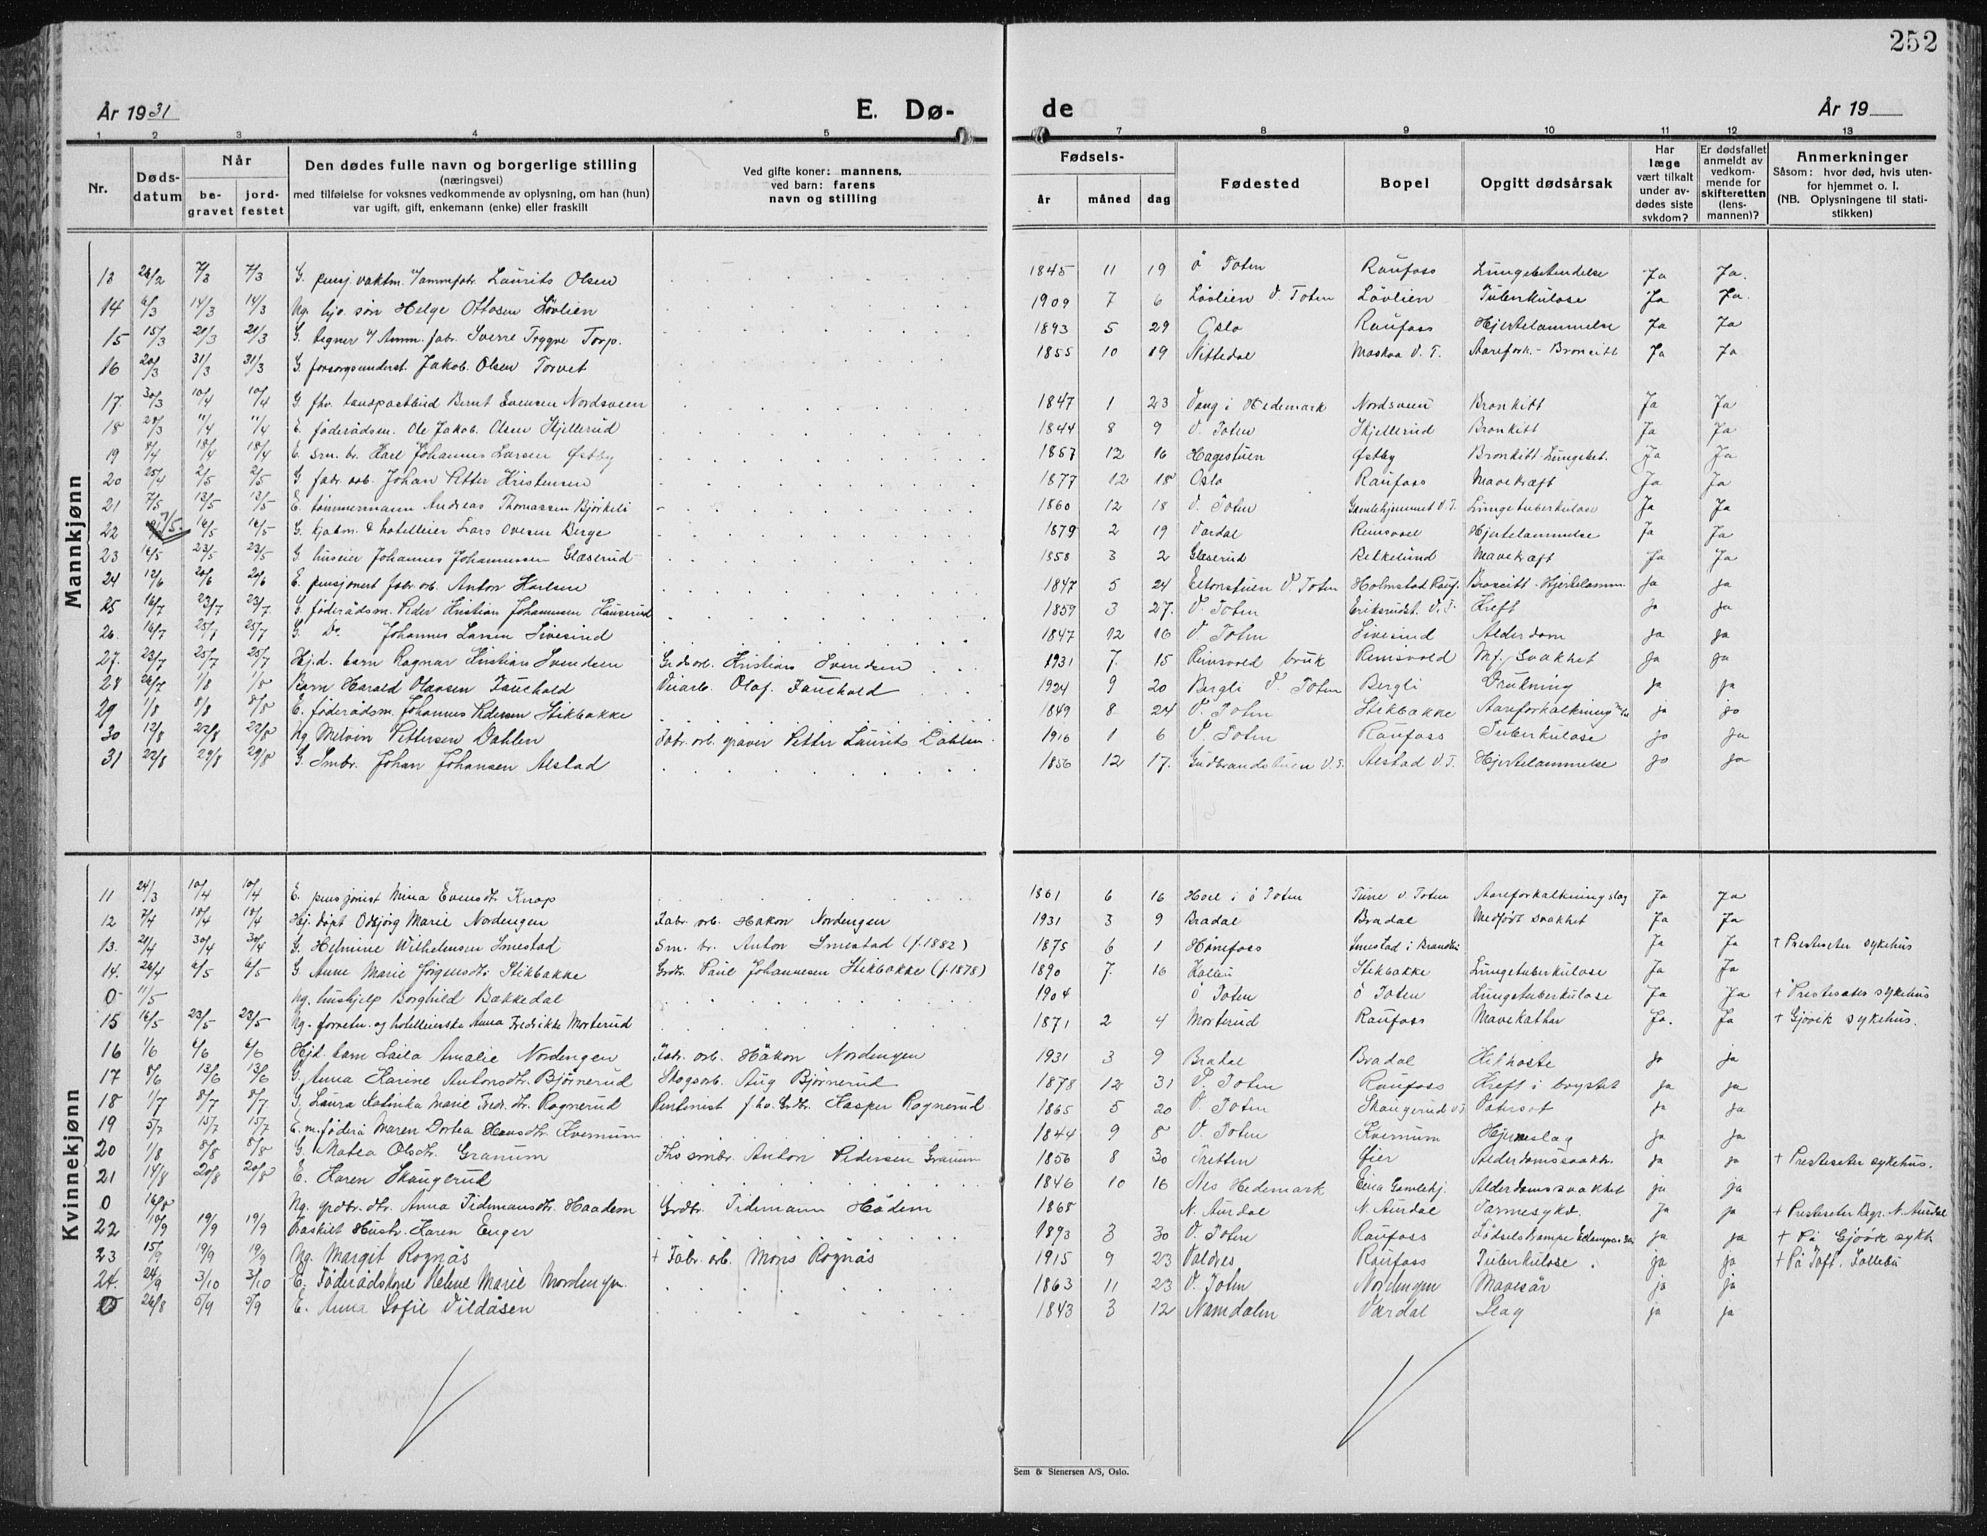 252
År 1931
E. Dø-
de
År 19
1 2 3 4 5 7 8 9 10 11 12 13
Nr.
Døds-
datum
Når
be-
gravet
jord-
festet
Den dødes fulle navn og borgerlige stilling
(næringsvei)
med tilføielse for voksnes vedkommende av oplysning, om han (hun)
var ugift, gift, enkemann (enke) eller fraskilt
Ved gifte koner: mannens,
ved barn: farens
navn og stilling
Fødsels-
år måned dag
Fødested
Bopel
Opgitt dødsårsak
Har
læge
vært tilkalt
under av-
dødes siste
sykdom?
Er dødsfallet
anmeldt av
vedkom-
mende for
skifteretten
(lens-
mannen)?
Anmerkninger
Såsom: hvor død, hvis uten-
for hjemmet o. l.
(NB. Oplysningene til stati-
stikken)
Mannkjønn
13 26/2 7/3 7/3 G. pensj vaktm. v/ammofabr. Laurits Olsen 1845 11 19 Ö Toten Raufoss Lungebetendelse Ja Ja.
14 6/3 14/3 14/3 Ug. hjv. søn Helge Ottosen Lövlien 1909 7 6 Lövlien V. Toten Lövlien Tuberkulose Ja Ja.
15 15/3 21/3 21/3 G. tegner v/ Amm. fabr. Sverre Trygve Torp. 1893 5 29 Oslo Raufoss Hjertelammelse Ja Ja
16 20/3 31/3 31/3 G. forsorgsunderst. Jakob Olsen Torvet 1855 10 19 Nittedal Moskaa V. T. Aarefork.- Broncitt Ja Ja
17. 30/3 10/4 10/4 G. fhv. landpostbud Bernt Evensen Nordsveen 1847 1 23 Vang i Hedemark Nordsveen Bronkitt Ja Ja
18 28/3 11/4 11/4 E. föderådsm. Ole Jakob Olsen Skjellerud 1844 8 9 V. Toten Skjellerud Bronkitt Ja Ja
19 8/4 18/4 18/4 E. sm. br. Karl Johannes Larsen Østby 1857 12 16 Hagestuen Østby Bronkitt-Lungebet. Ja Ja
20 25/4 2/5 2/5 G. fabr. arb. Johan Petter Kristensen 1877 12 18 Oslo Raufoss Mavekræft Ja Ja
21 7/5 13/5 13/5 E. tømmermann Andreas Thomassen Bjørkeli 1860 12 18 V. Toten Gamlehjemmet V. T. Lungetuberkulose Ja Ja
22 7/5 16/5 16/5 G. Gaatm. & hotelleier Lars Ovesen Berge 1879 2 19 Vardal Reinsvol Hjertelammelse Ja Ja
23 16/5 23/5 23/5 G. huseier Johannes Johannessen Glæserud 1858 3 2 Glæserud Birkelund Mavekræft Ja Ja
24 12/6 20/6 20/6 E. pensjonert fabr. arb. Anton Karlsen 1847 5 24 V. Toten Holmstad Rauf. Broncitt-Hjertelamm. Ja Ja
25 16/7 23/7 23/7 G. föderådsm. Peder Kristian Johannesen Hauserud 1859 3 27. V. Toten Eriksrudst. V. T. Kreft Ja Ja
26. 16/7 25/7 25/7 G. Do Johannes Larsen Sivesind 1847 12 16 V. Toten Sivesind Alderdom Ja Ja
27. 23/7 25/7 25/7 Hj.d. barn Ragnar Kristians Svendsen Gardsarb. Kristians Svendsen 1931 7. 15 Reinsvold bruk Reinsvold Mf. svakhet Ja Ja
28 26/7 1/8 1/8 Barn Harald Olavsen Fauchald Veiarb. Olaf Fauchald 1924 9 20 Bergli V. Toten Bergli Drukning ja ja
29 1/8 8/8 8/8 E. föderådsm. Johannes Pedersen Stikbakke 1849 8 24 V. Toten Stikbakke Aareforkalkning ja ja
30 12/8 22/8 22/8 Ug Melvin Pettersen Dahlen Fabr. arb. graver Petter Laurits Dahlen. 1916 1 6 V. Toten Raufoss Tuberkulose ja ja
31 22/8 29/8 29/8 G. Smbr. Johan Johansen Alstad 1856 12 17. Gudbrandstuen V. T. Alstad V. T. Hjertelammelse ja ja
Kvinnekjønn
11 24/3 10/4 10/4 E. pensjonist Mina Evensdtr. Knap 1861 6 16 Hoel i Ö Toten Tune V. Toten Aareforkalkning slag Ja Ja
12 7/4 18/4 18/4 Hj. døpt Odbjørg Marie Nordengen Fabr. arb. Håkon Nordengen 1931 3 9 Bradal Bradal Medfødt svakhet Ja Ja
13. 21/4 30/4 30/4 G. Helmine Wilhelmsen Smestad Sm. br. Anton Smestad (f. 1882) 1875 6 1 Hønefoss Smestad i Ja Ja + Presteseter sykehus
14. 26/4 6/5 6/5 G. Anne Marie Jörgensdtr. Stikbakke Grdbr. Paul Johannesen Stikbakke (f. 1878) 1890 7. 16 Kolbu Stikbakke Lungetuberkulose Ja Ja
0 11/5 Ug. hushjelp Borghild Bakkedal 1904 Ö Toten Ö Toten Lungetuberkulose Ja Ja + Presteseter sykehus
15 16/5 23/5 23/5 Ug. forretn. og hotelleierske Anna Fredrikke Morterud 1871 2 4 Morterud Raufoss Mavekathar Ja. Ja + Gjövik sykehus.
16 1/6 6/6 6/6 Hjd. barn Laila Amalie Nordengen Fabr. arb. Håkon Nordengen 1931 3 9 Bradal Bradal Kikhoste ja ja
17 8/6 13/6 13/6 G. Anna Karine Antonsdtr. Bjørnerud Skogsarb. Aug Bjørnerud 1878 12 31 V. Toten Raufoss Kreft i brystet ja ja
18 1/7 8/7 8/7 G. Laura Katinka Marie Fredr. dtr. Rognerud Rentenist fhv. Grdbr. Kasper Rognerud 1865 5 20 V. Toten Skaugerud V. T. Vatersot ja ja
19 5/7 15/7 15/7 E. m. föderå Maren Dortea Hansdtr. Kvernum 1844 9 8 V. Toten Kvernum Hjerneslag ja ja
20 1/8 8/8 8/8 G. Matea Olsdtr. Granum Fhv smbr. Anton Pedersen Granum 1856 8 30 Tretten Øier Alderdomssvakh. ja ja + Presteseter sykehus.
21 14/8 20/8 20/8 E. Karen Skaugerud 1846 10 16 Nes Hedemark Eina Gamlehj. Alderdomssvakhet ja ja
0 16/8 Ug. grdbr. dtr. Anna Tidemansdtr. Haadem Grdbr. Tidemann Hådem 1868 N. Aurdal N. Aurdal Tarmesykd. Ja ja + Presteseter Begr. N. Aurdal
22 10/9 19/9 19/9 Fraskilt Hustr. Karen Enger 1893 3 30 V. Toten Raufoss ja ja + På Gjövik sykh
23 15/9 19/9 19/9 Ug. Margit Rognås + Fabr. arb. Mons Rognås 1915 9 23 Valdres Raufoss Tuberkulose. ja ja + På Toft. Follebu
24. 24/9 3/10 3/10 E. Föderådskone Helene Marie Nordengen. 1863 11 23 V. Toten Nordengen Mavesår ja ja
0 26/8 5/9 5/9 E. Anna Sofie Vildåsen 1843 3 12 Namdalen Vardal Slag ja ja
Sem & Stenersen A/S, Oslo.